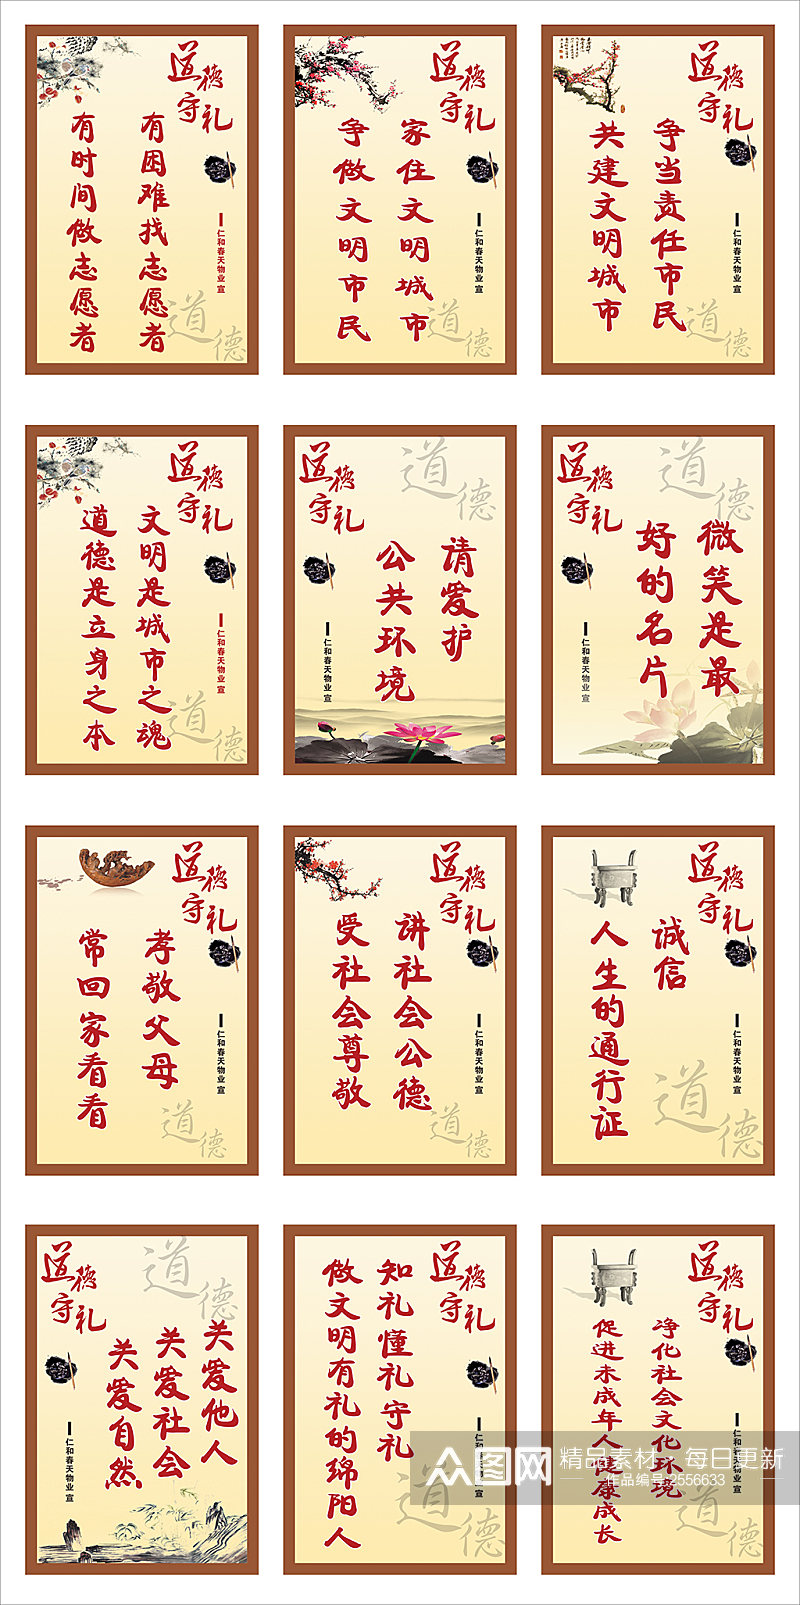 道德
守礼
有困难找志愿者
有时间做志愿者
仁和春天物业 宣
道德
道德
守礼
家住文明城市
争做文明市民
仁和春天物业 宣
道德
道德
守礼
争当责任市民
共建文明城市
仁和春天物业 宣
道德
道德
守礼
文明是城市之魂
道德是立身之本
仁和春天物业 宣
道德
道德
守礼
道德
请爱护
公共环境
仁和春天物业 宣
道德
守礼
道德
微笑是最
好的名片
仁和春天物业 宣
道德
守礼
孝敬父母
常回家看看
仁和春天物业 宣
道德
道德
守礼
讲社会公德
受社会尊敬
仁和春天物业 宣
道德
道德
守礼
诚信
人生的通行证
仁和春天物业 宣
道德
道德
守礼
道德
关爱他人
关爱社会
关爱自然
仁和春天物业 宣
道德
守礼
知礼懂礼守礼
做文明有礼的绵阳人
仁和春天物业 宣
道德
道德
守礼
净化社会文化环境
促进未成年人健康成长
仁和春天物业 宣
道德
众图网
精品素材 · 每日更新
作品编号:2556633